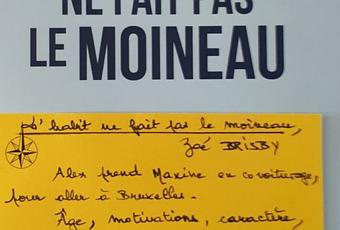 NE FAIT PAS
LE MOINEAU
L'habit ne fait pas le moineau,
Zoé BRISBY
Alex prend Maxine en covoiturage,
pour aller à Bruxelles.
Âge, motivations, caractère,